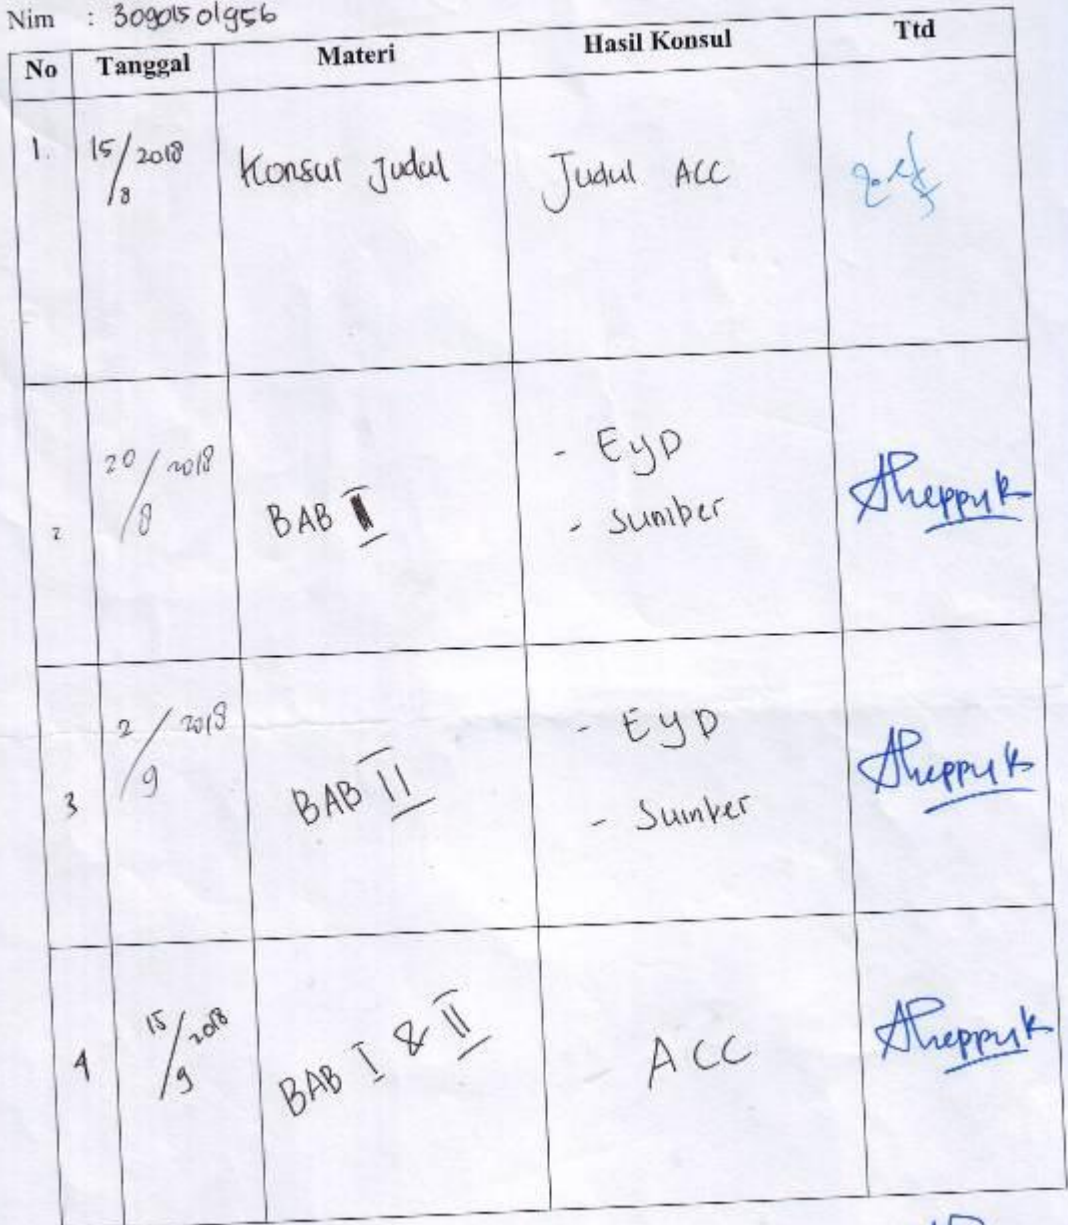 Nim : 30901501956
No Tanggal Materi Hasil Konsul Ttd
1. 15/8 2018 Konsul Judul Judul ACC
2 20/8 2018 BAB I - EYD
- Sumber
3 2/9 2018 BAB II - EYD
- Sumber
4 15/9 2018 BAB I & II ACC